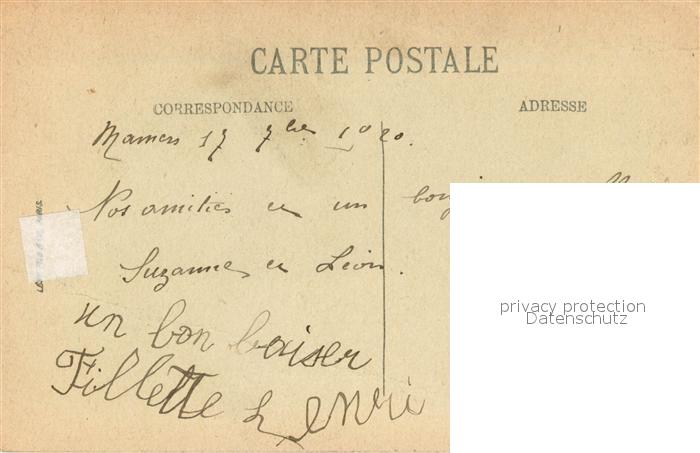 CARTE POSTALE
CORRESPONDANCE ADRESSE
Mamers 17 7bre 1920.
Nos amitiés et un
Suzanne et Léon.
un bon baiser
Fillette Henri
privacy protection
Datenschutz